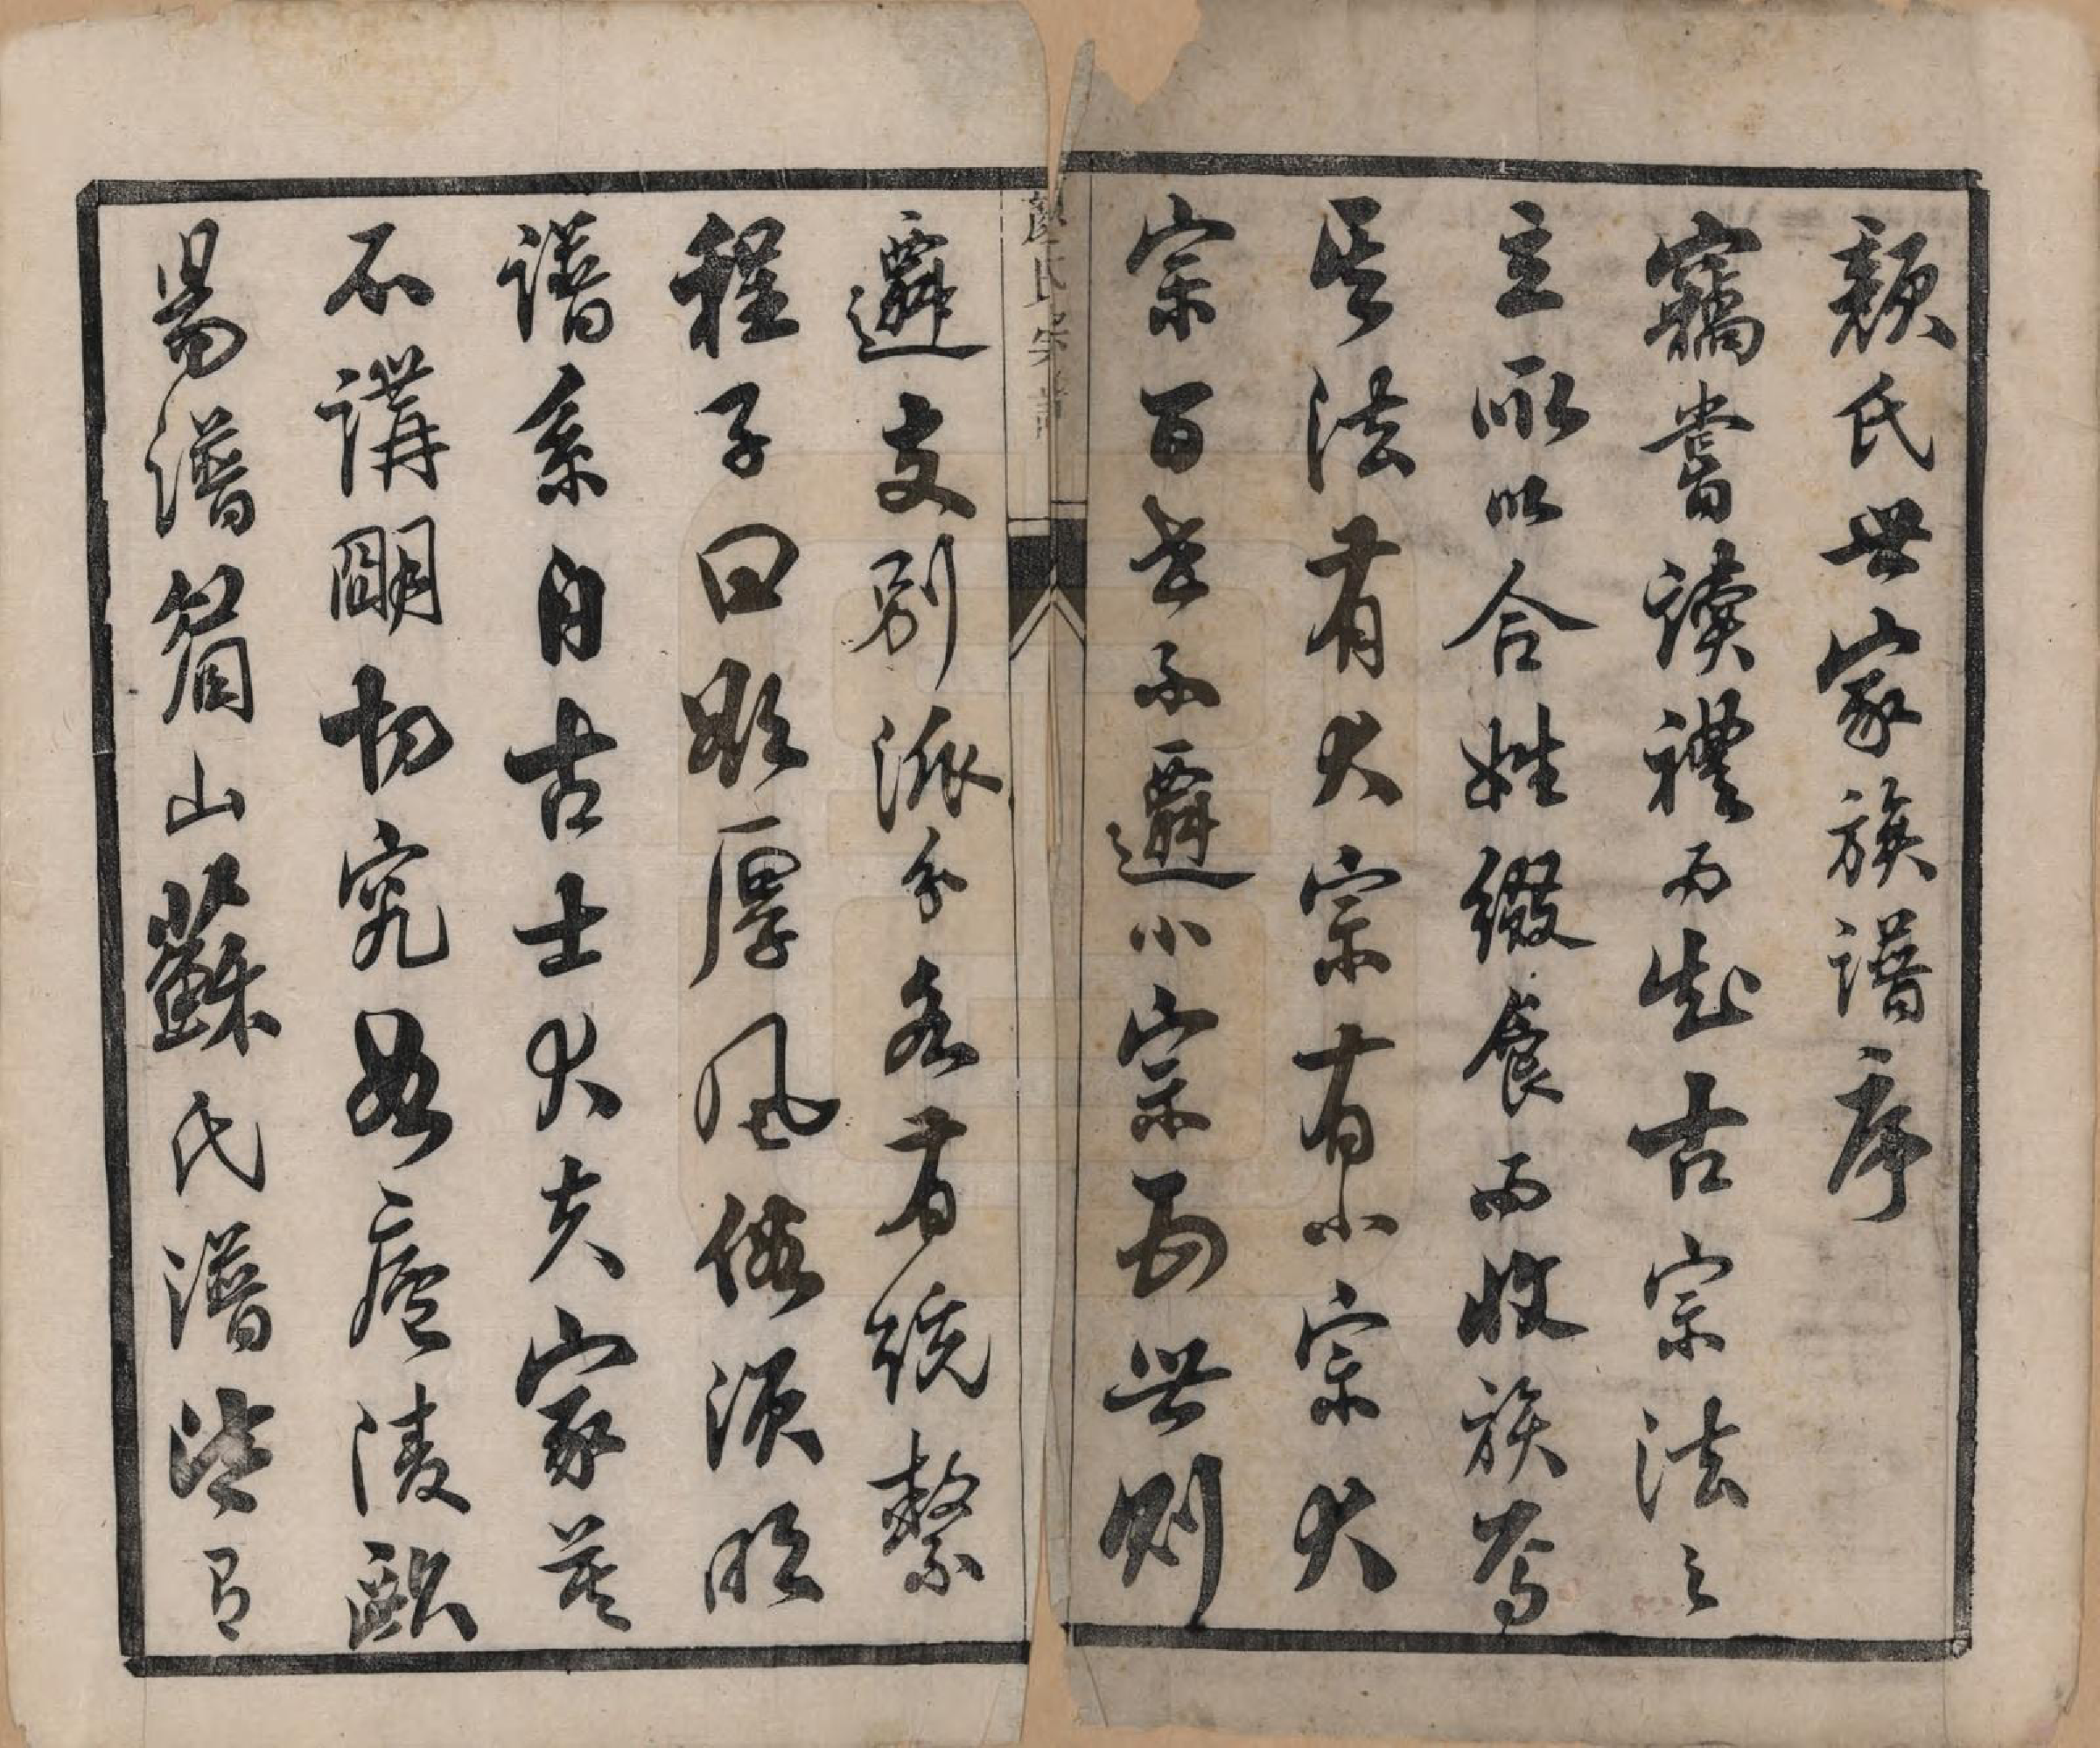 顏氏世家族譜序
竊嘗讀禮而知古宗法之
立所以合姓綴食而收族焉
其法有大宗有小宗大
宗百世不遷小宗五世則
遷支別派分各有統繫
程子曰欲厚風俗須明
譜系自古士大夫家莫
不講明切究如廬陵歐
陽譜眉山蘇氏譜皆有
顏氏宗譜